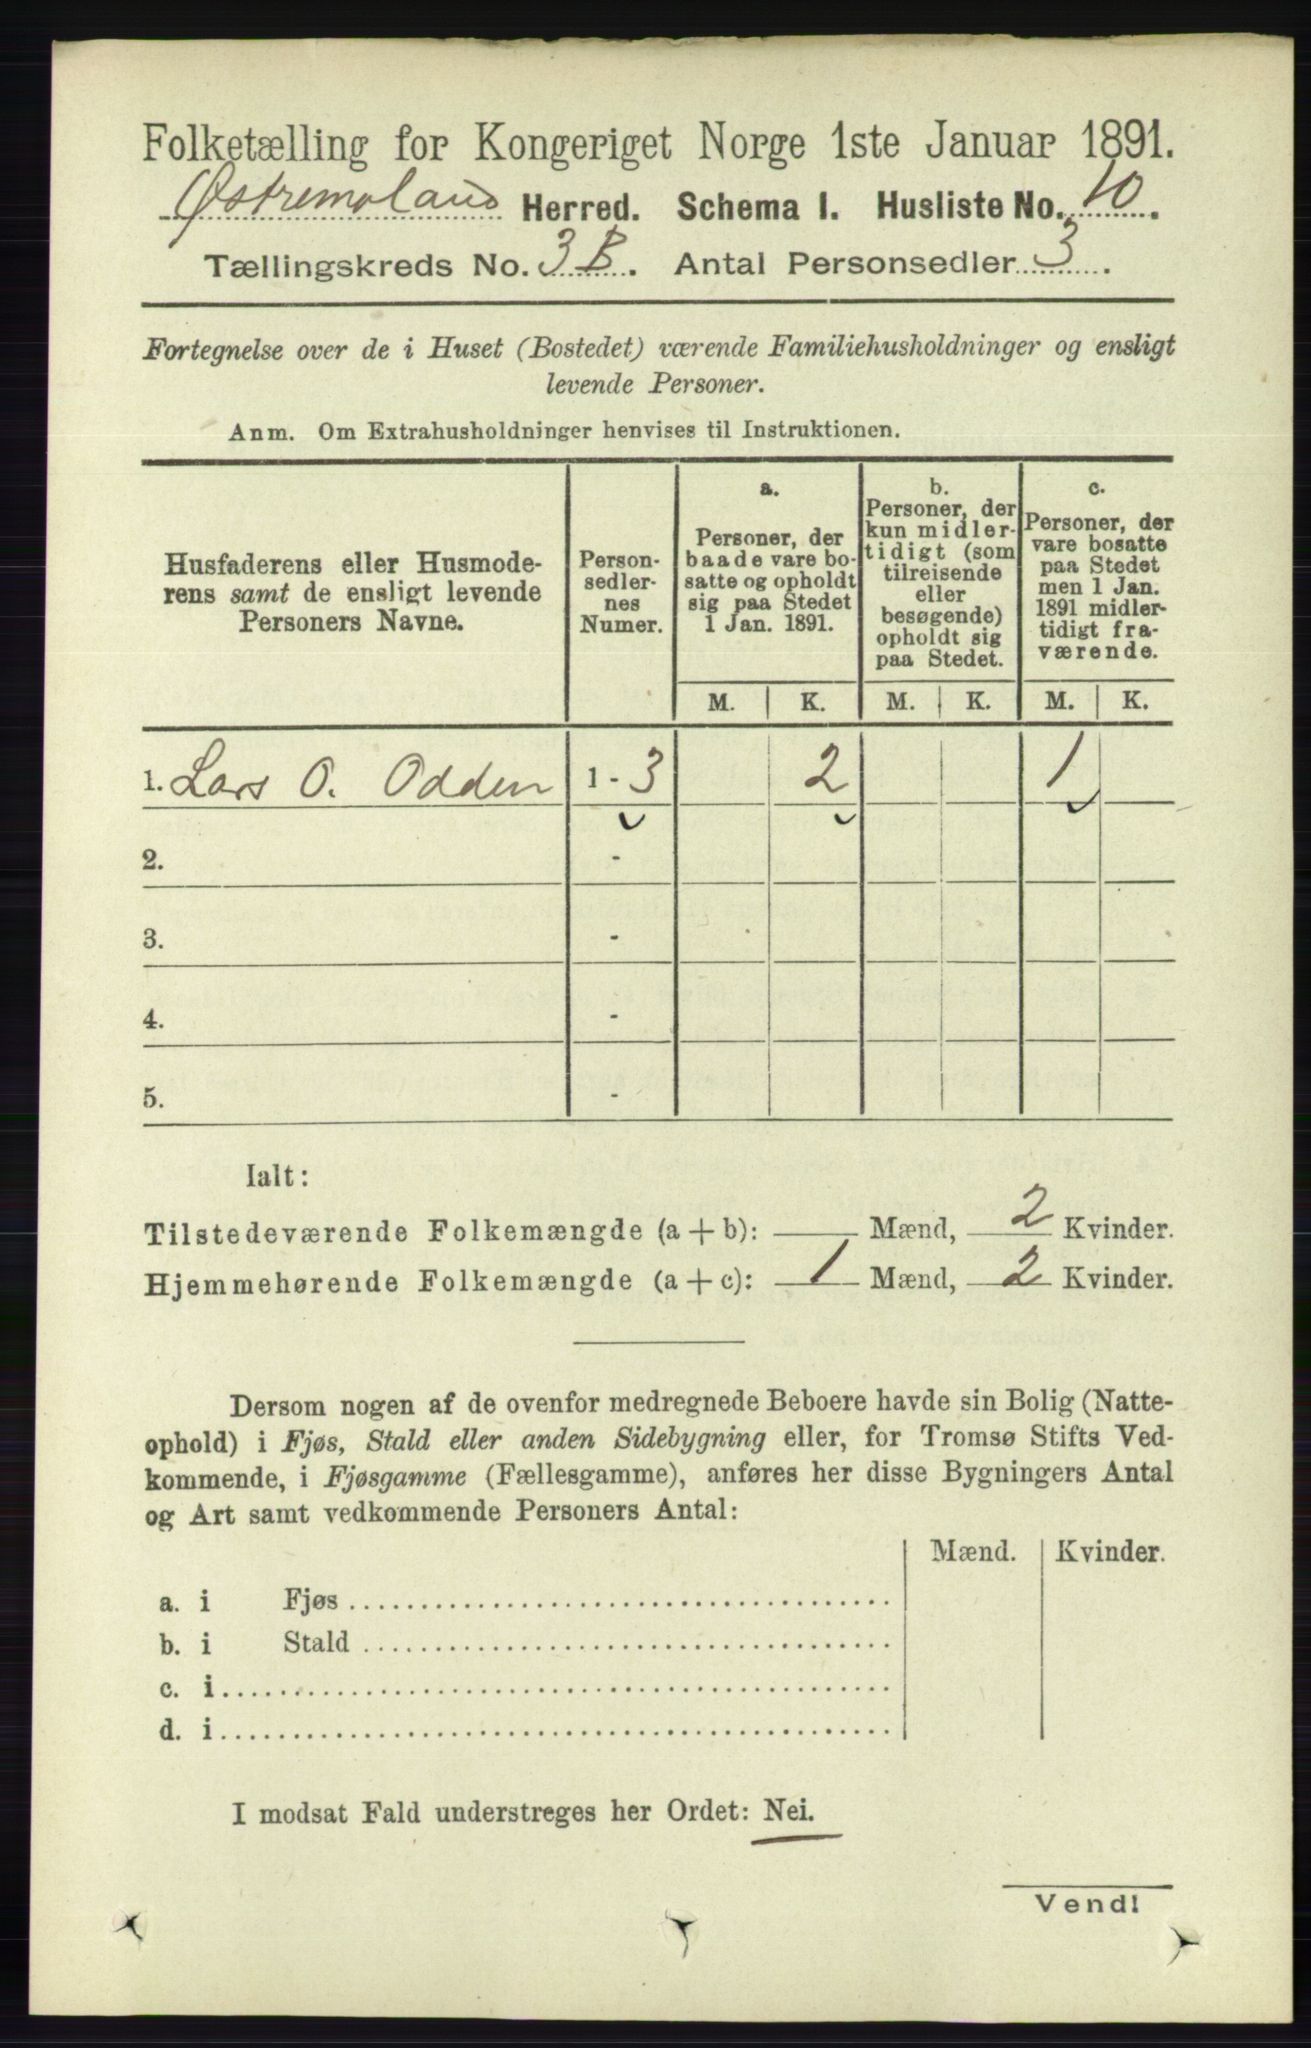 Folketælling for Kongeriget Norge 1ste Januar 1891.
Østremoland Herred. Schema I. Husliste No. 10.
Tællingskreds No. 3B. Antal Personsedler 3.
Fortegnelse over de i Huset (Bostedet) værende Familiehusholdninger og ensligt
levende Personer.
Anm. Om Extrahusholdninger henvises til Instruktionen.
Husfaderens eller Husmode-
rens samt de ensligt levende
Personers Navne.
Person-
sedler-
nes
Numer.
a.
Personer, der
baade vare bo-
satte og opholdt
sig paa Stedet
1 Jan. 1891.
b.
Personer, der
kun midler-
tidigt (som
tilreisende
eller
besøgende)
opholdt sig
paa Stedet.
c.
Personer, der
vare bosatte
paa Stedet
men 1 Jan.
1891 midler-
tidigt fra-
værende.
M. K. M. K. M. K.
1. Lars O. Odden 1 - 3 2 1
2. -
3. -
4. -
5. -
Ialt:
Tilstedeværende Folkemængde (a + b): Mænd, 2 Kvinder.
Hjemmehørende Folkemængde (a + c): 1 Mænd, 2 Kvinder.
Dersom nogen af de ovenfor medregnede Beboere havde sin Bolig (Natte-
ophold) i Fjøs, Stald eller anden Sidebygning eller, for Tromsø Stifts Ved-
kommende, i Fjøsgamme (Fællesgamme), anføres her disse Bygningers Antal
og Art samt vedkommende Personers Antal:
Mænd. Kvinder.
a. i Fjøs
b. i Stald
c. i
d. i
I modsat Fald understreges her Ordet: Nei.
Vend!